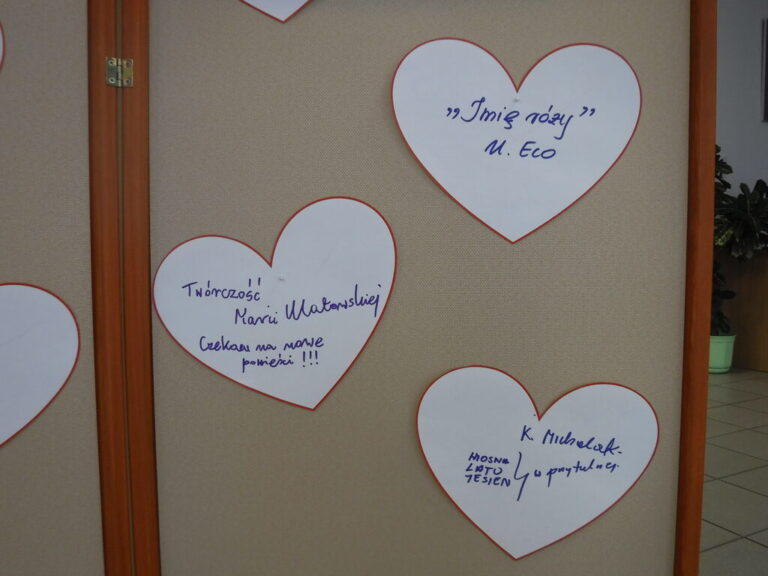 „Imię róży”
U. Eco
Twórczość
Marii Ulatowskiej
Czekam na nowe
powieści !!!
K. Michalak.
WIOSNA
LATO
JESIEŃ
w przytulnej